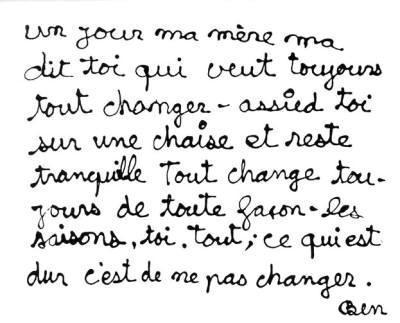 un jour ma mère ma
dit toi qui veut toujours
tout changer - assied toi
sur une chaise et reste
tranquille Tout change tou-
jours de toute façon - les
saisons, toi, tout, ; ce qui est
dur c'est de ne pas changer.
Ben